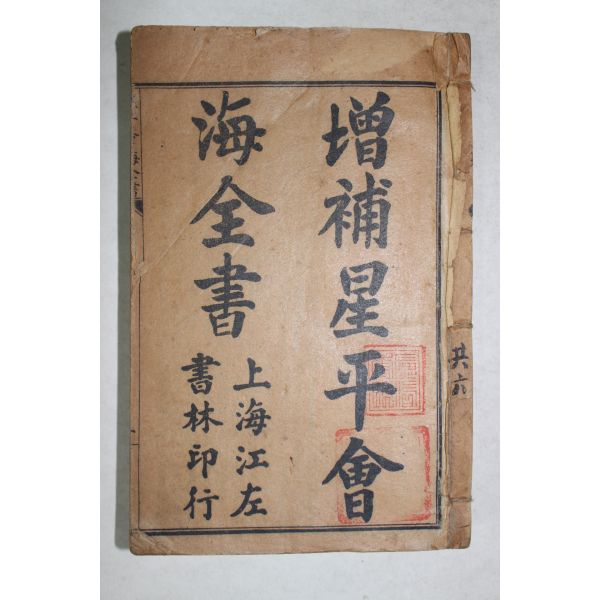 增補星平會
海全書
上海江左
書林印行
共六